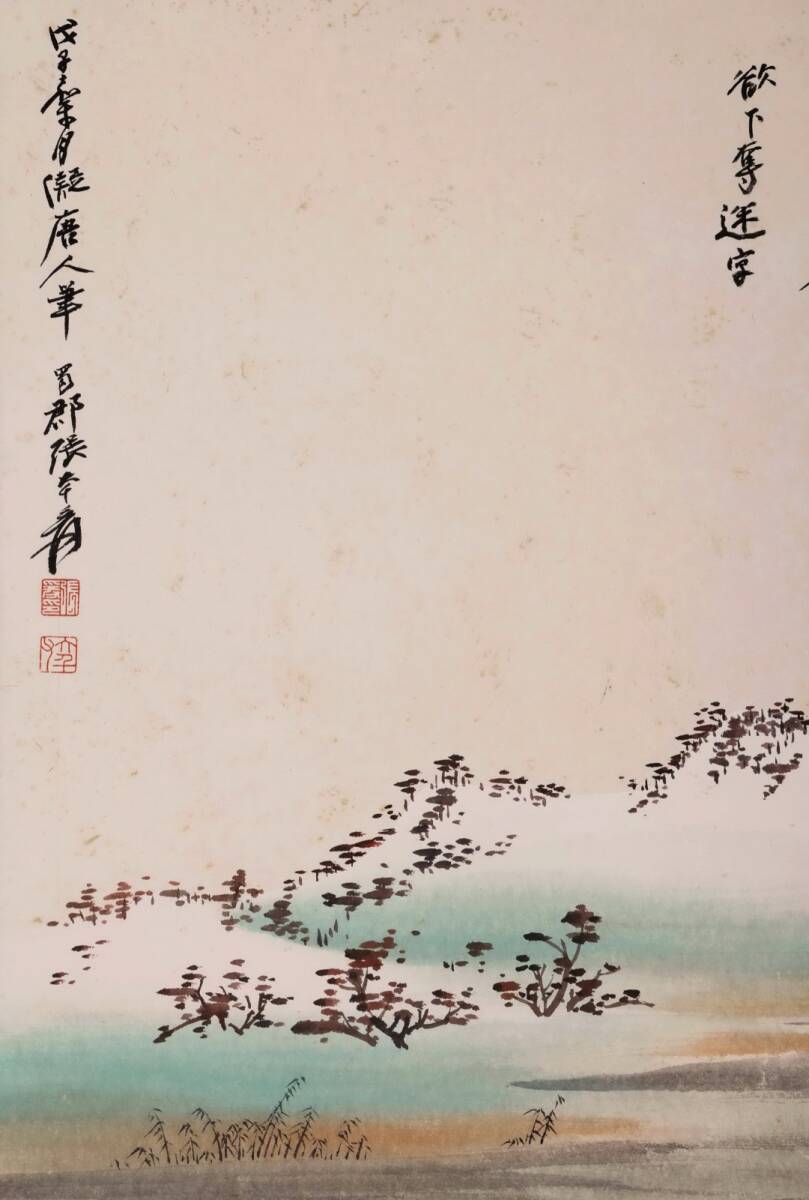 欲下奪迷字
戊子秊月擬唐人筆 蜀郡張大千爰